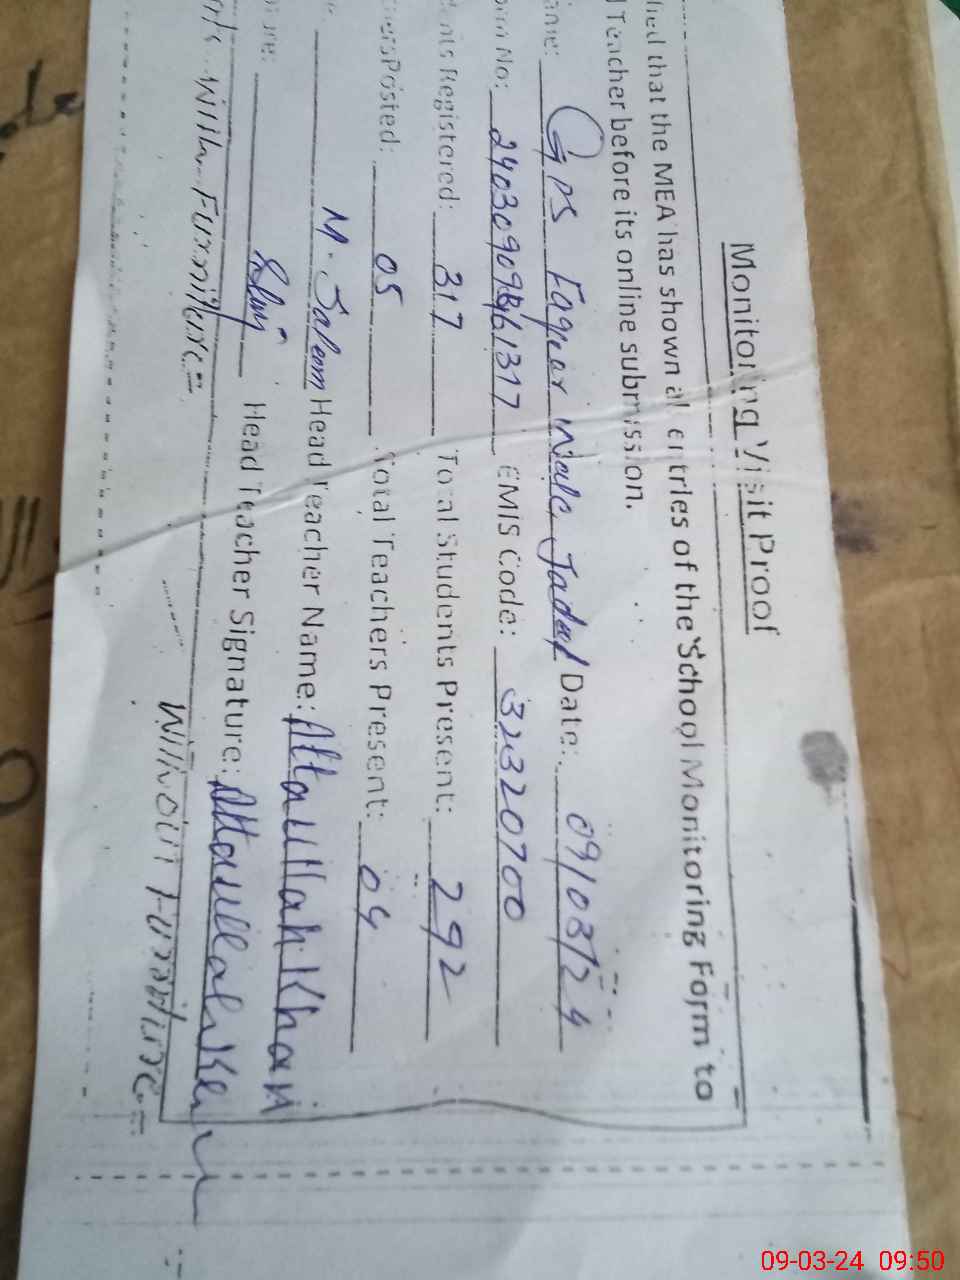 Monitoring Visit Proof
fied that the MEA has shown all entries of the School Monitoring Form to
Teacher before its online submission.
ame: GPS Faqeer wala Jadad Date: 09/03/24
No: EMIS Code: 32320700
ents Registered: 317 Total Students Present: 292
ersPosted: 05 Total Teachers Present: 04
M. Saleem Head Teacher Name: Attaullah Khan
ure: Head Teacher Signature: Attaullah Khan
With Furniture=
Without Furniture=
09-03-24 09:50